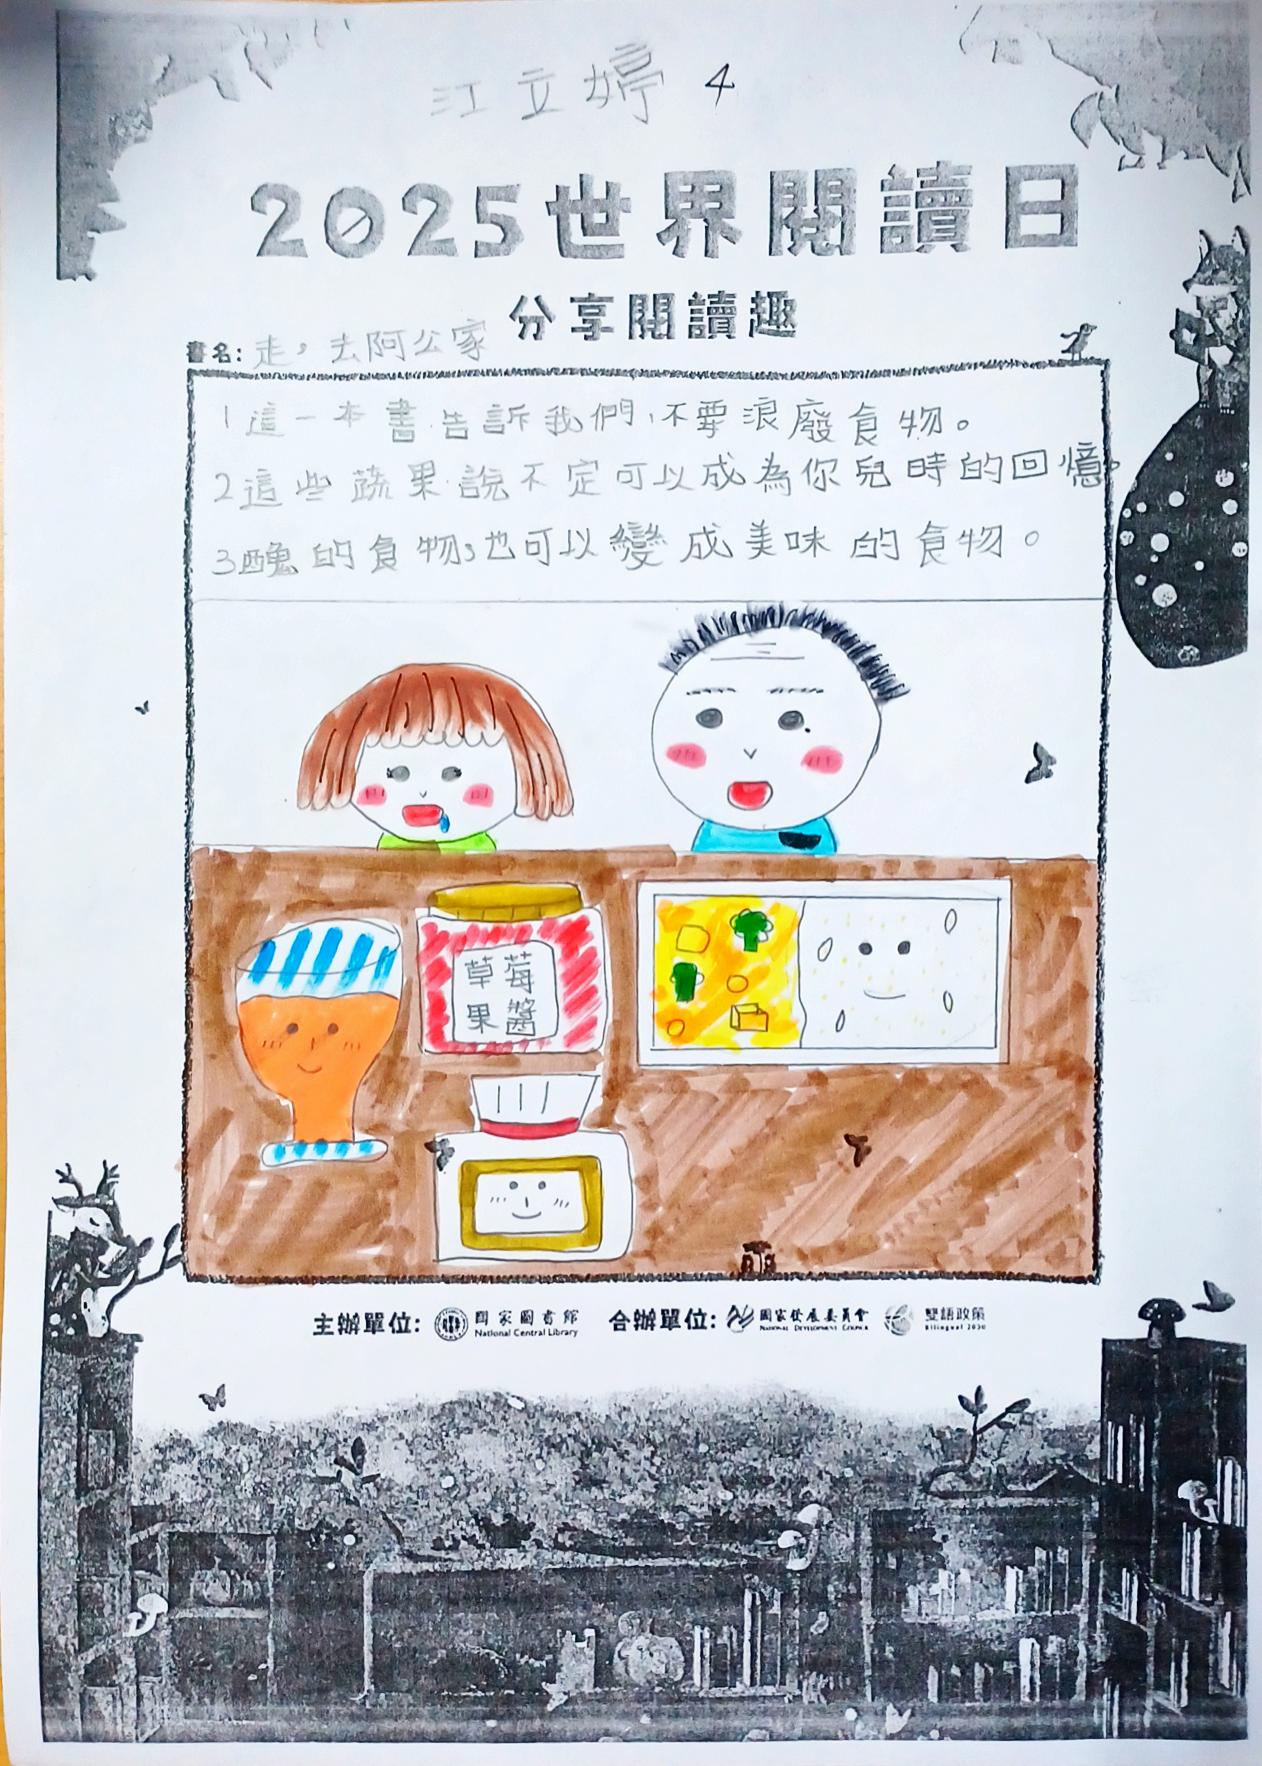 江立婷 4
2025世界閱讀日
分享閱讀趣
書名: 走，去阿公家
1這一本書告訴我們，不要浪廢食物。
2這些蔬果說不定可以成為你兒時的回憶。
3醜的食物，也可以變成美味的食物。
草莓
果醬
主辦單位: 國家圖書館 National Central Library 合辦單位: 國家發展委員會 National Development Council 雙語政策 Bilingual 2030